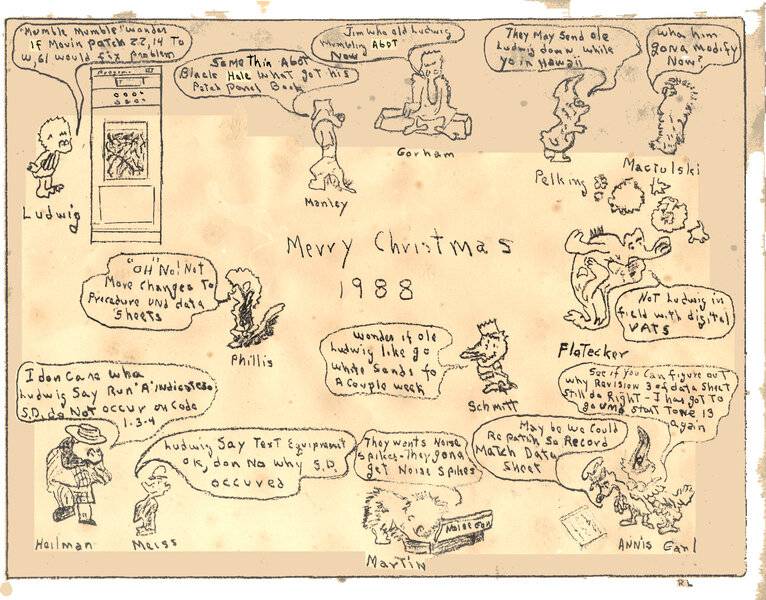 "Mumble Mumble" wonder
If Movin patch 22,14 To
W,61 would fix problem
Ludwig
Some Thin Abot
Black Hole What got his
Patch Panel Book
Manley
Jim who old Ludwig
Mumbling Abot
Now
Gorham
They May Send ole
Ludwig down while
yo in Hawaii
Pelking
Wha him
gona Modify
Now?
Maciulski
Merry Christmas
1988
"OH" No! Not
More changes To
Procedure and data
Sheets
Phillis
Wonder if ole
Ludwig like go
White Sands fo
A Couple week
Schmitt
Not Ludwig in
field with digital
VATS
Flotecker
I don Care wha
Ludwig Say Run "A" indicates
S.D. do Not occur on Code
1-3-4
Heilman
Ludwig Say Text Equipment
OK, don No why S.D.
occured
Meiss
They wants Noise
Spikes-They gona
get Noise Spikes
Noise Gen
Martin
May be we Could
Repatch So Record
Match Data
Sheet
See if you Can figure out
why Revision 3 of data Sheet
Still do Right - I has got To
go
again
Annis Earl
RL